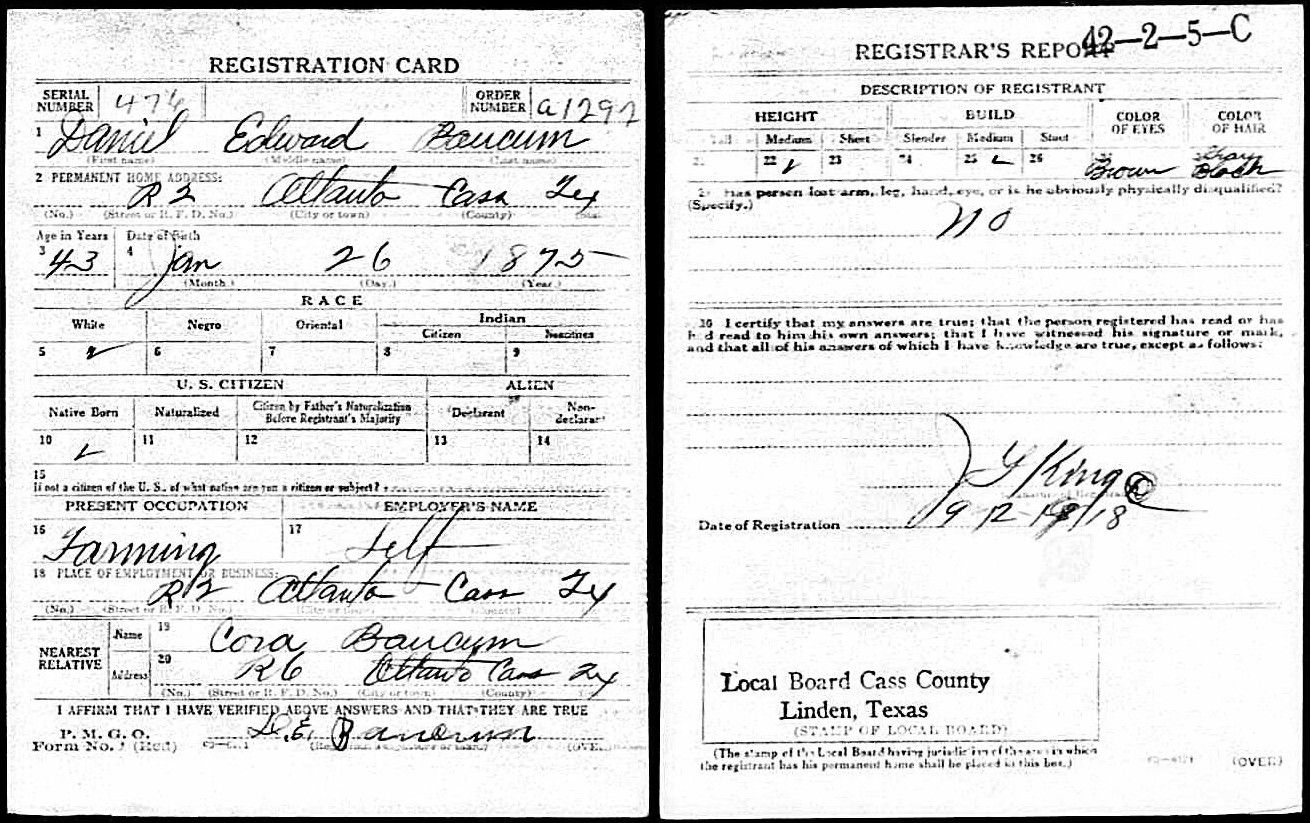 REGISTRATION CARD
SERIAL NUMBER 476 ORDER NUMBER A1297
1 Daniel Edward Baucum
(First name) (Middle name) (Last name)
2 PERMANENT HOME ADDRESS:
R2 Atlanta Cass Tex
(No.) (Street or R. F. D. No.) (City or town) (County) (State)
Age in Years Date of Birth
3 43 4 Jan 26 1875
(Month.) (Day.) (Year.)
RACE
White Negro Oriental Indian
Citizen
5 6 7 8 9
U. S. CITIZEN ALIEN
Native Born Naturalized Citizen by Father's Naturalization Before Registrant's Majority Declarant Non-declarant
10 11 12 13 14
15
If not a citizen of the U. S., of what nation are you a citizen or subject?
PRESENT OCCUPATION EMPLOYER'S NAME
16 Farming 17 Self
18 PLACE OF EMPLOYMENT OR BUSINESS:
R2 Atlanta Cass Tex
(No.) (Street or R. F. D. No.) (City or town) (County)
NEAREST RELATIVE Name 19 Cora Baucum
Address 20 R6 Atlanta Cass Tex
(No.) (Street or R. F. D. No.) (City or town) (County)
I AFFIRM THAT I HAVE VERIFIED ABOVE ANSWERS AND THAT THEY ARE TRUE
P. M. G. O.
Form No. 1 (Red) D. E. Baucum (OVER)
REGISTRAR'S REPORT 42—2—5—C
DESCRIPTION OF REGISTRANT
HEIGHT BUILD COLOR OF EYES COLOR OF HAIR
Tall Medium Short Slender Medium Stout
21 22 23 24 25 26 Brown Gray Black
29 Has person lost arm, leg, hand, eye, or is he obviously physically disqualified?
(Specify.)
no
30 I certify that my answers are true; that the person registered has read or has
had read to him his own answers; that I have witnessed his signature or mark,
and that all of his answers of which I have knowledge are true, except as follows:
King
Date of Registration 9-12-1918
Local Board Cass County
Linden, Texas
(STAMP OF LOCAL BOARD)
(The stamp of the Local Board having jurisdiction of the area in which
the registrant has his permanent home shall be placed in this box.)
(OVER)